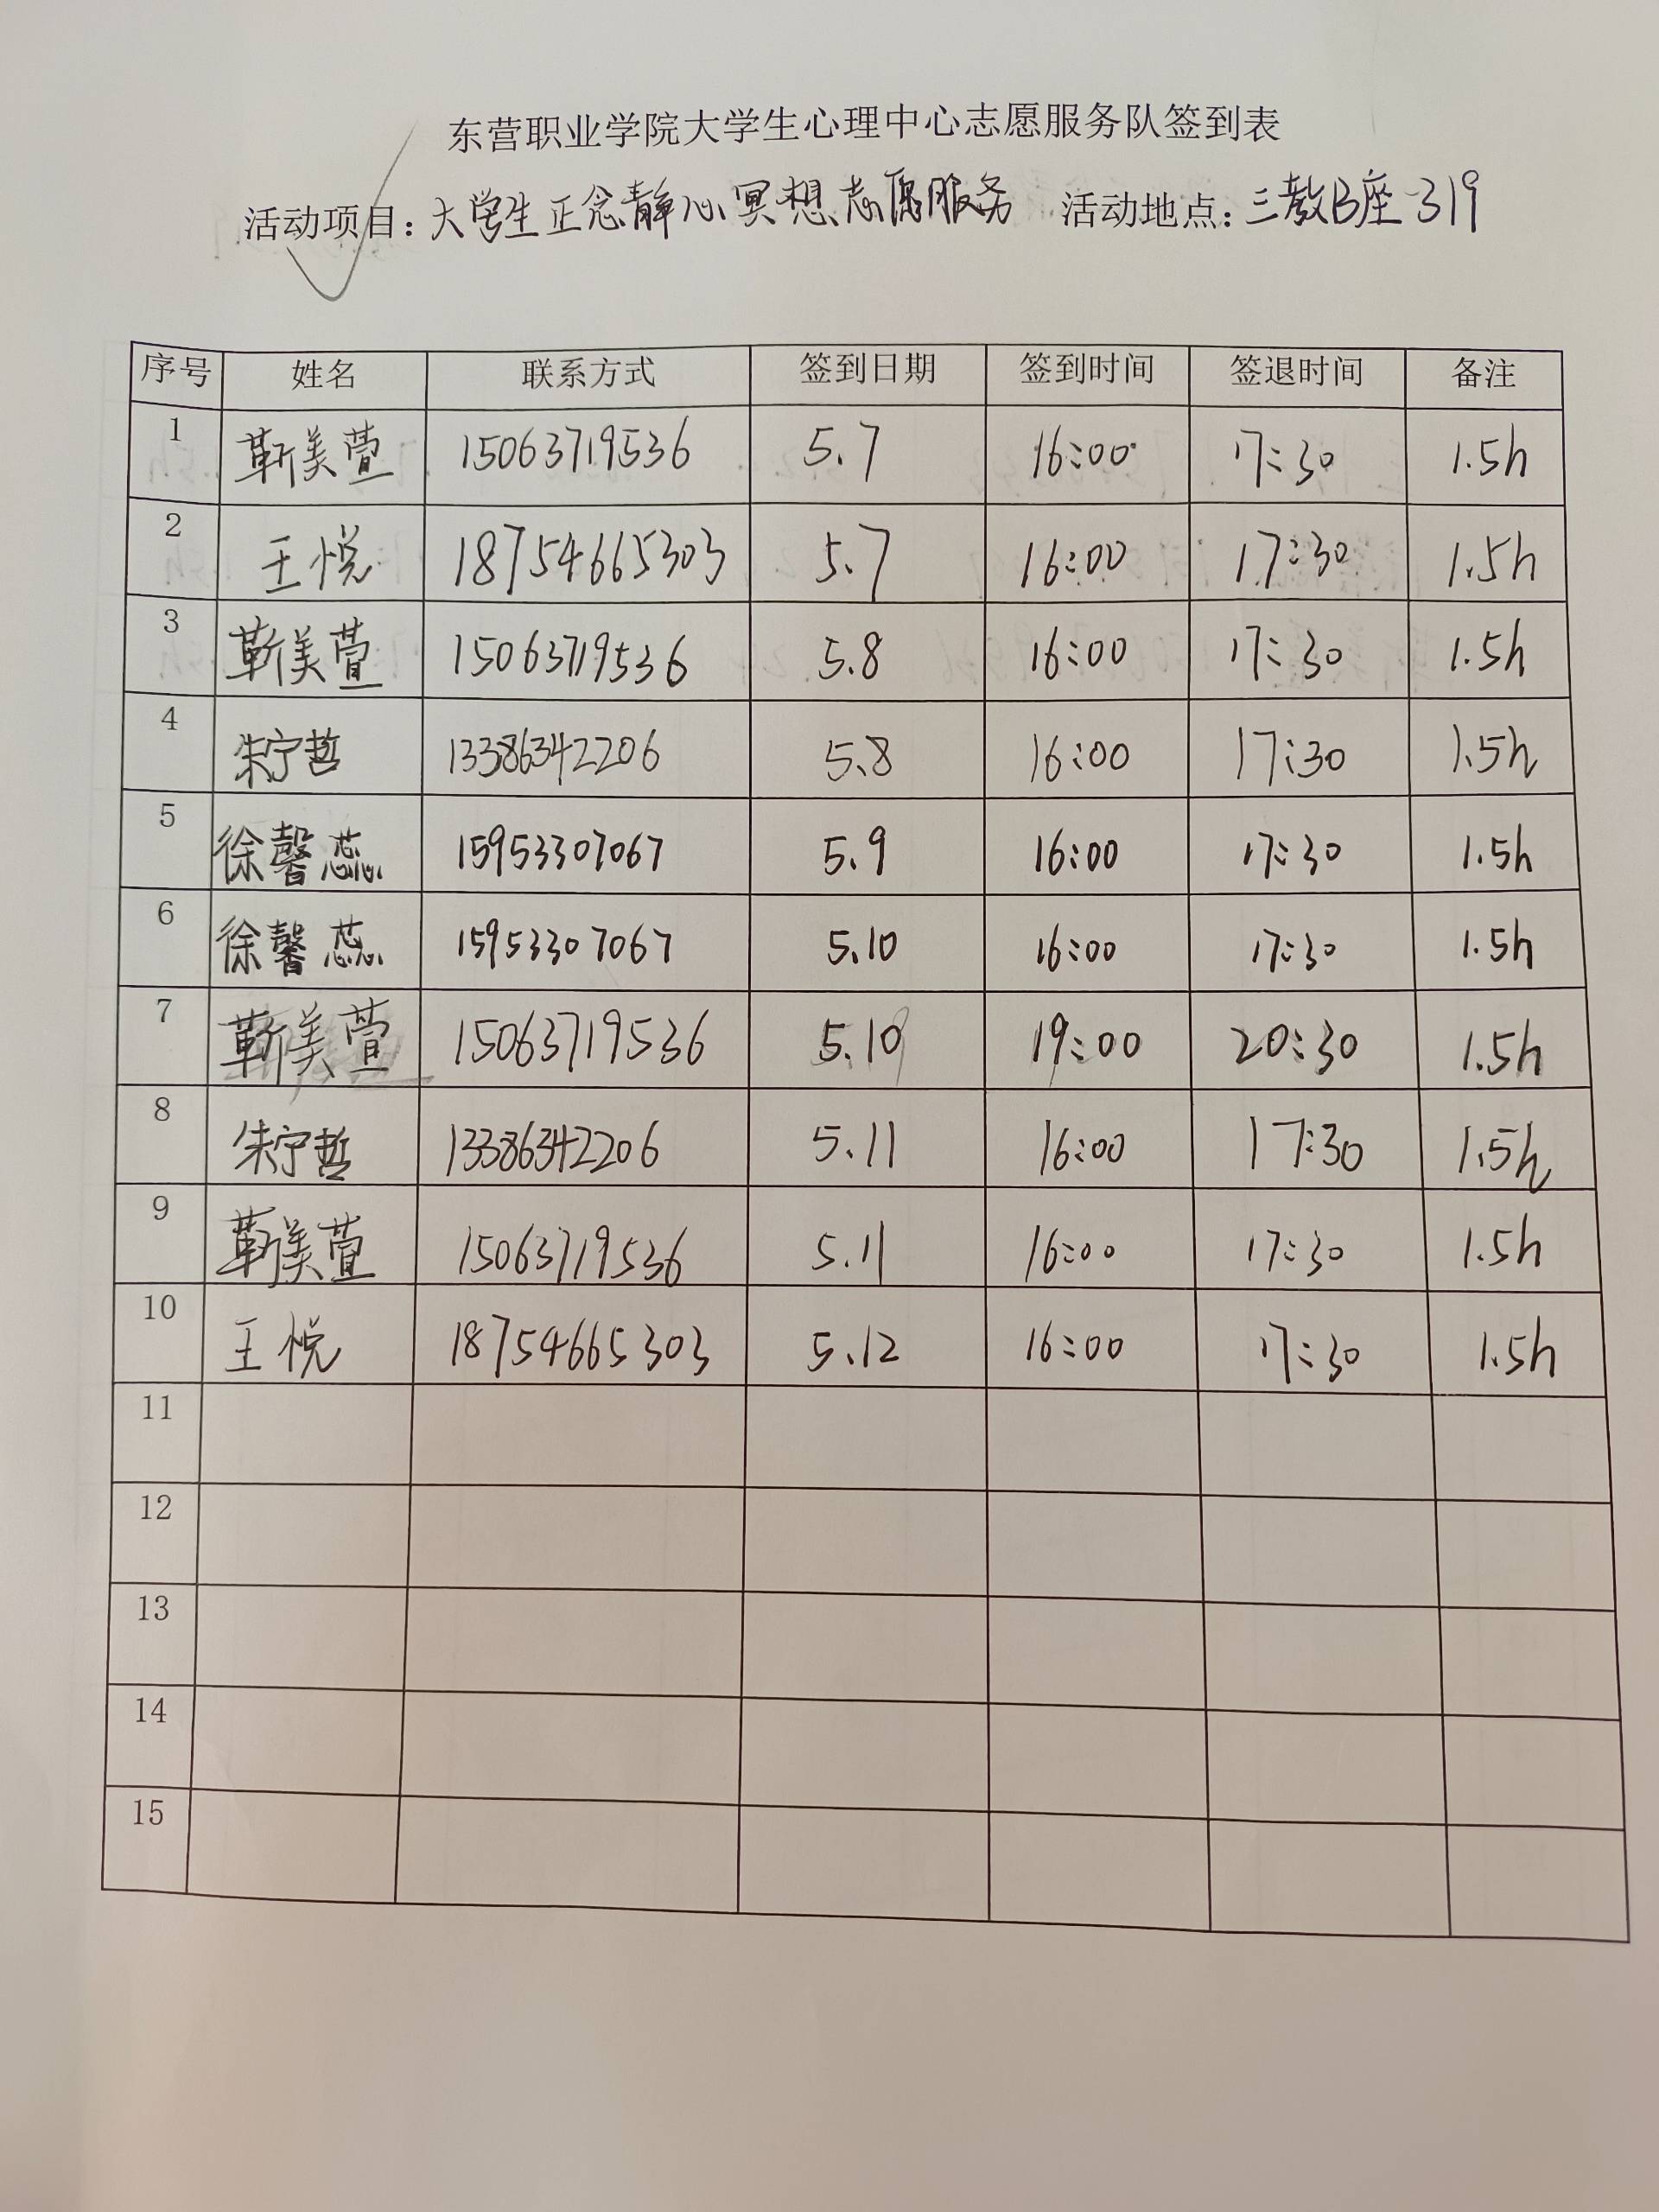 东营职业学院大学生心理中心志愿服务队签到表
活动项目：大学生正念静心冥想志愿服务 活动地点：三教B座-319
序号 姓名 联系方式 签到日期 签到时间 签退时间 备注
1 靳美萱 15063719536 5.7 16:00 17:30 1.5h
2 王悦 18754665303 5.7 16:00 17:30 1.5h
3 靳美萱 15063719536 5.8 16:00 17:30 1.5h
4 朱宁哲 13386342206 5.8 16:00 17:30 1.5h
5 徐馨蕊 15953307067 5.9 16:00 17:30 1.5h
6 徐馨蕊 15953307067 5.10 16:00 17:30 1.5h
7 靳美萱 15063719536 5.10 19:00 20:30 1.5h
8 朱宁哲 13386342206 5.11 16:00 17:30 1.5h
9 靳美萱 15063719536 5.11 16:00 17:30 1.5h
10 王悦 18754665303 5.12 16:00 17:30 1.5h
11
12
13
14
15